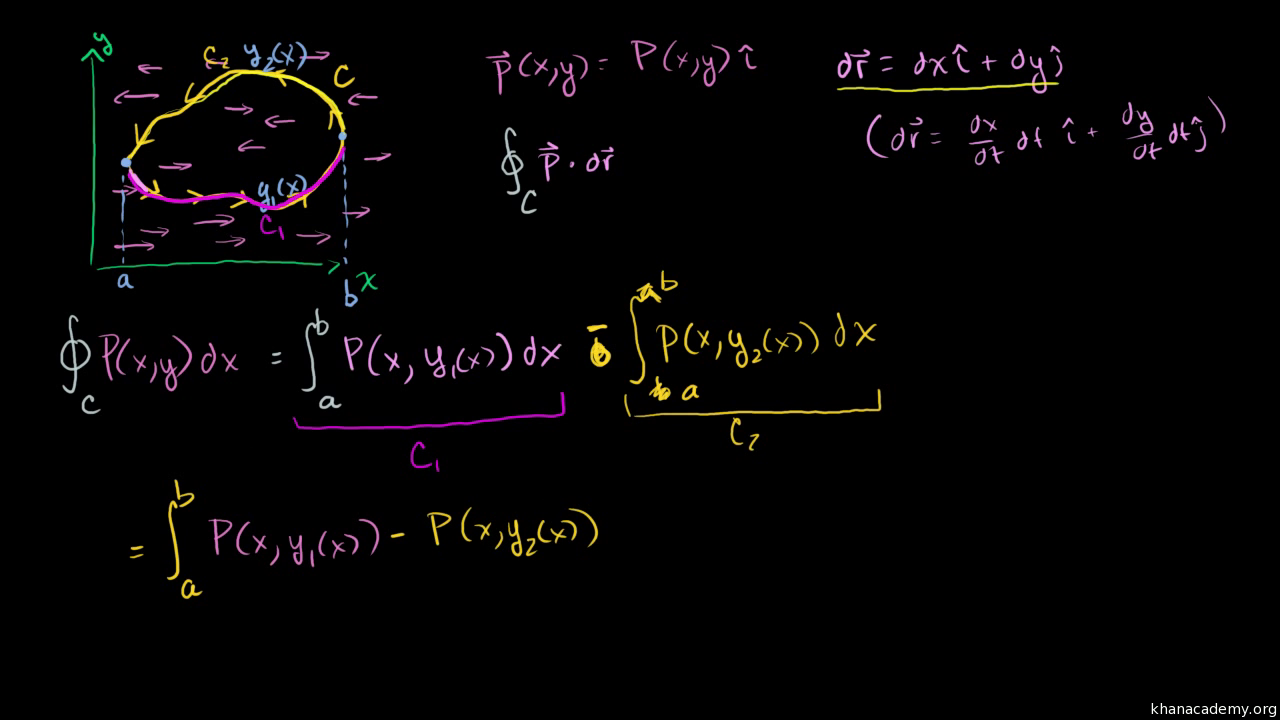 y
C₂ y₂(x)
C
y₁(x)
C₁
a
b
x
p⃗(x,y) = P(x,y) î
dr⃗ = dx î + dy ĵ
(dr⃗ = dx/dt dt î + dy/dt dt ĵ)
∮_C p⃗ · dr⃗
∮_C P(x,y) dx = ∫_a^b P(x, y₁(x)) dx - ∫_a^b P(x, y₂(x)) dx
C₁
C₂
= ∫_a^b P(x, y₁(x)) - P(x, y₂(x))
khanacademy.org